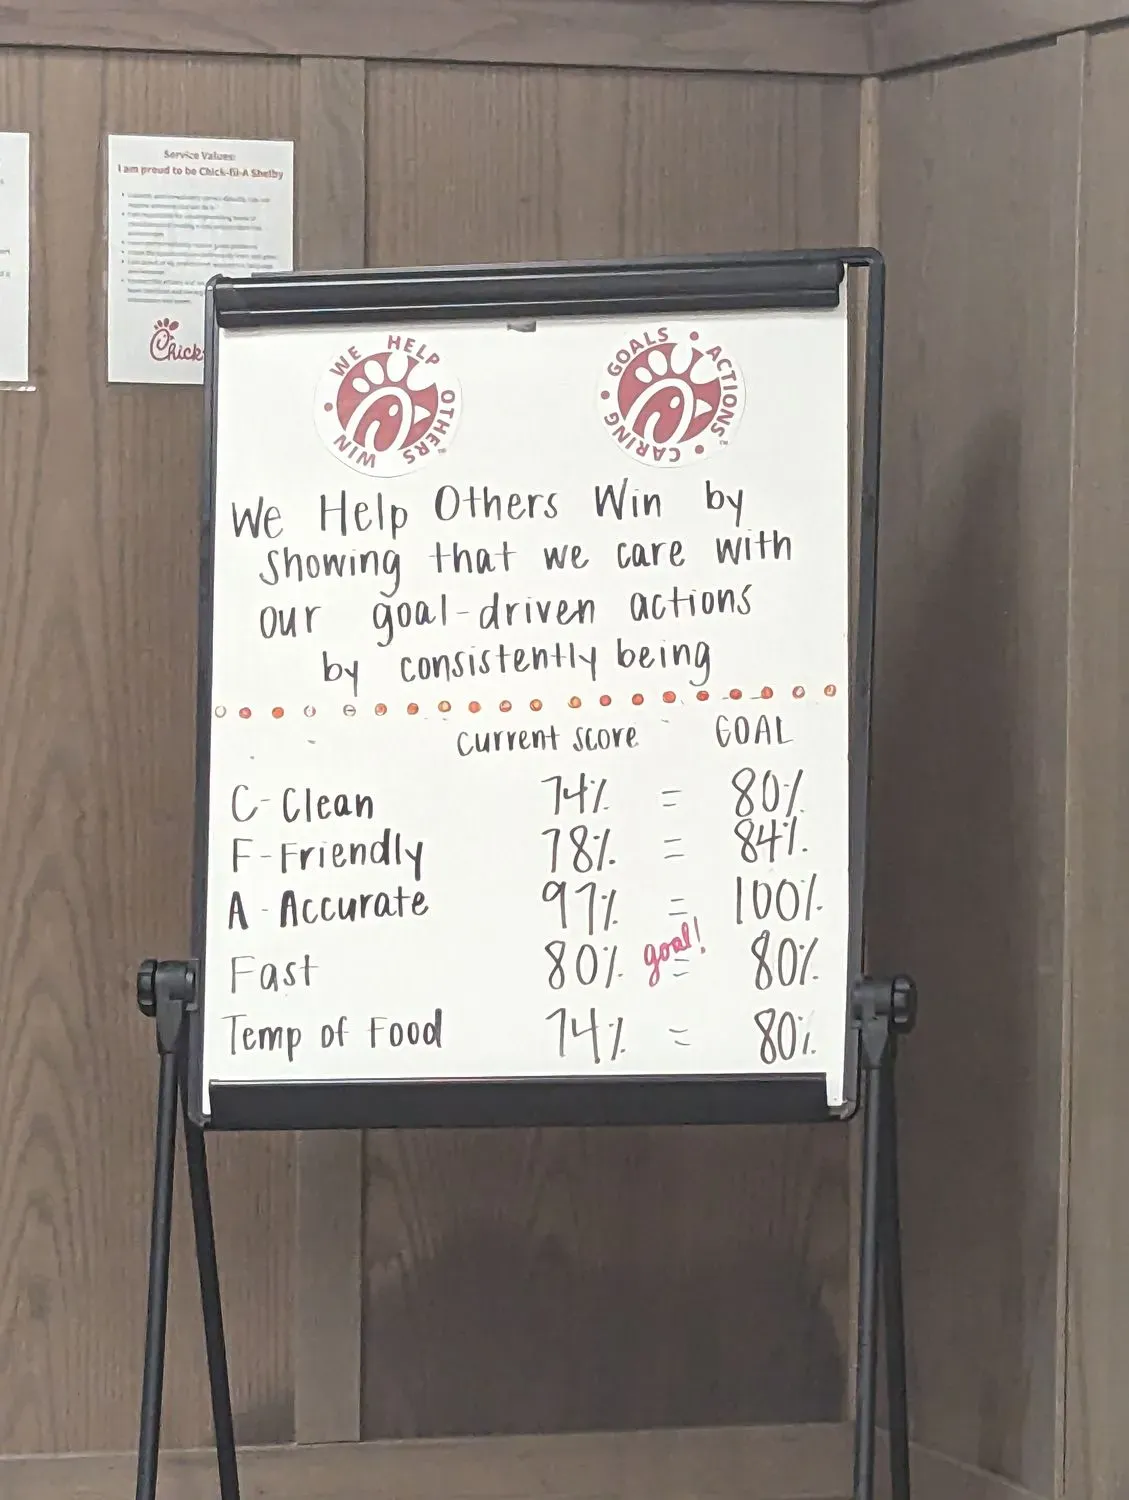 Service Values:
I am proud to be Chick-fil-A Shelby
Chick
WE HELP OTHERS WIN
GOALS • ACTIONS • CARING •
We Help Others Win by
showing that we care with
our goal-driven actions
by consistently being
current score GOAL
C-Clean 74% = 80%
F-Friendly 78% = 84%.
A-Accurate 97% = 100%
Fast 80% goal! = 80%
Temp of Food 74% = 80%